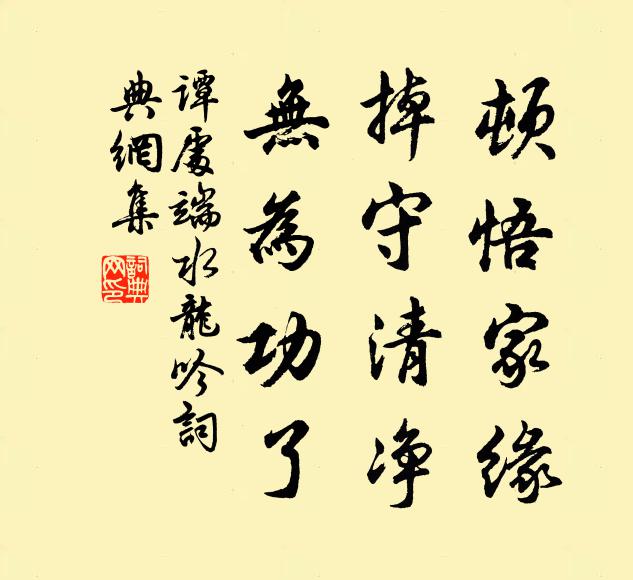 頓悟家緣
掉守清净
無為功了
譚處端水龍吟詞
典網集
詞典網印